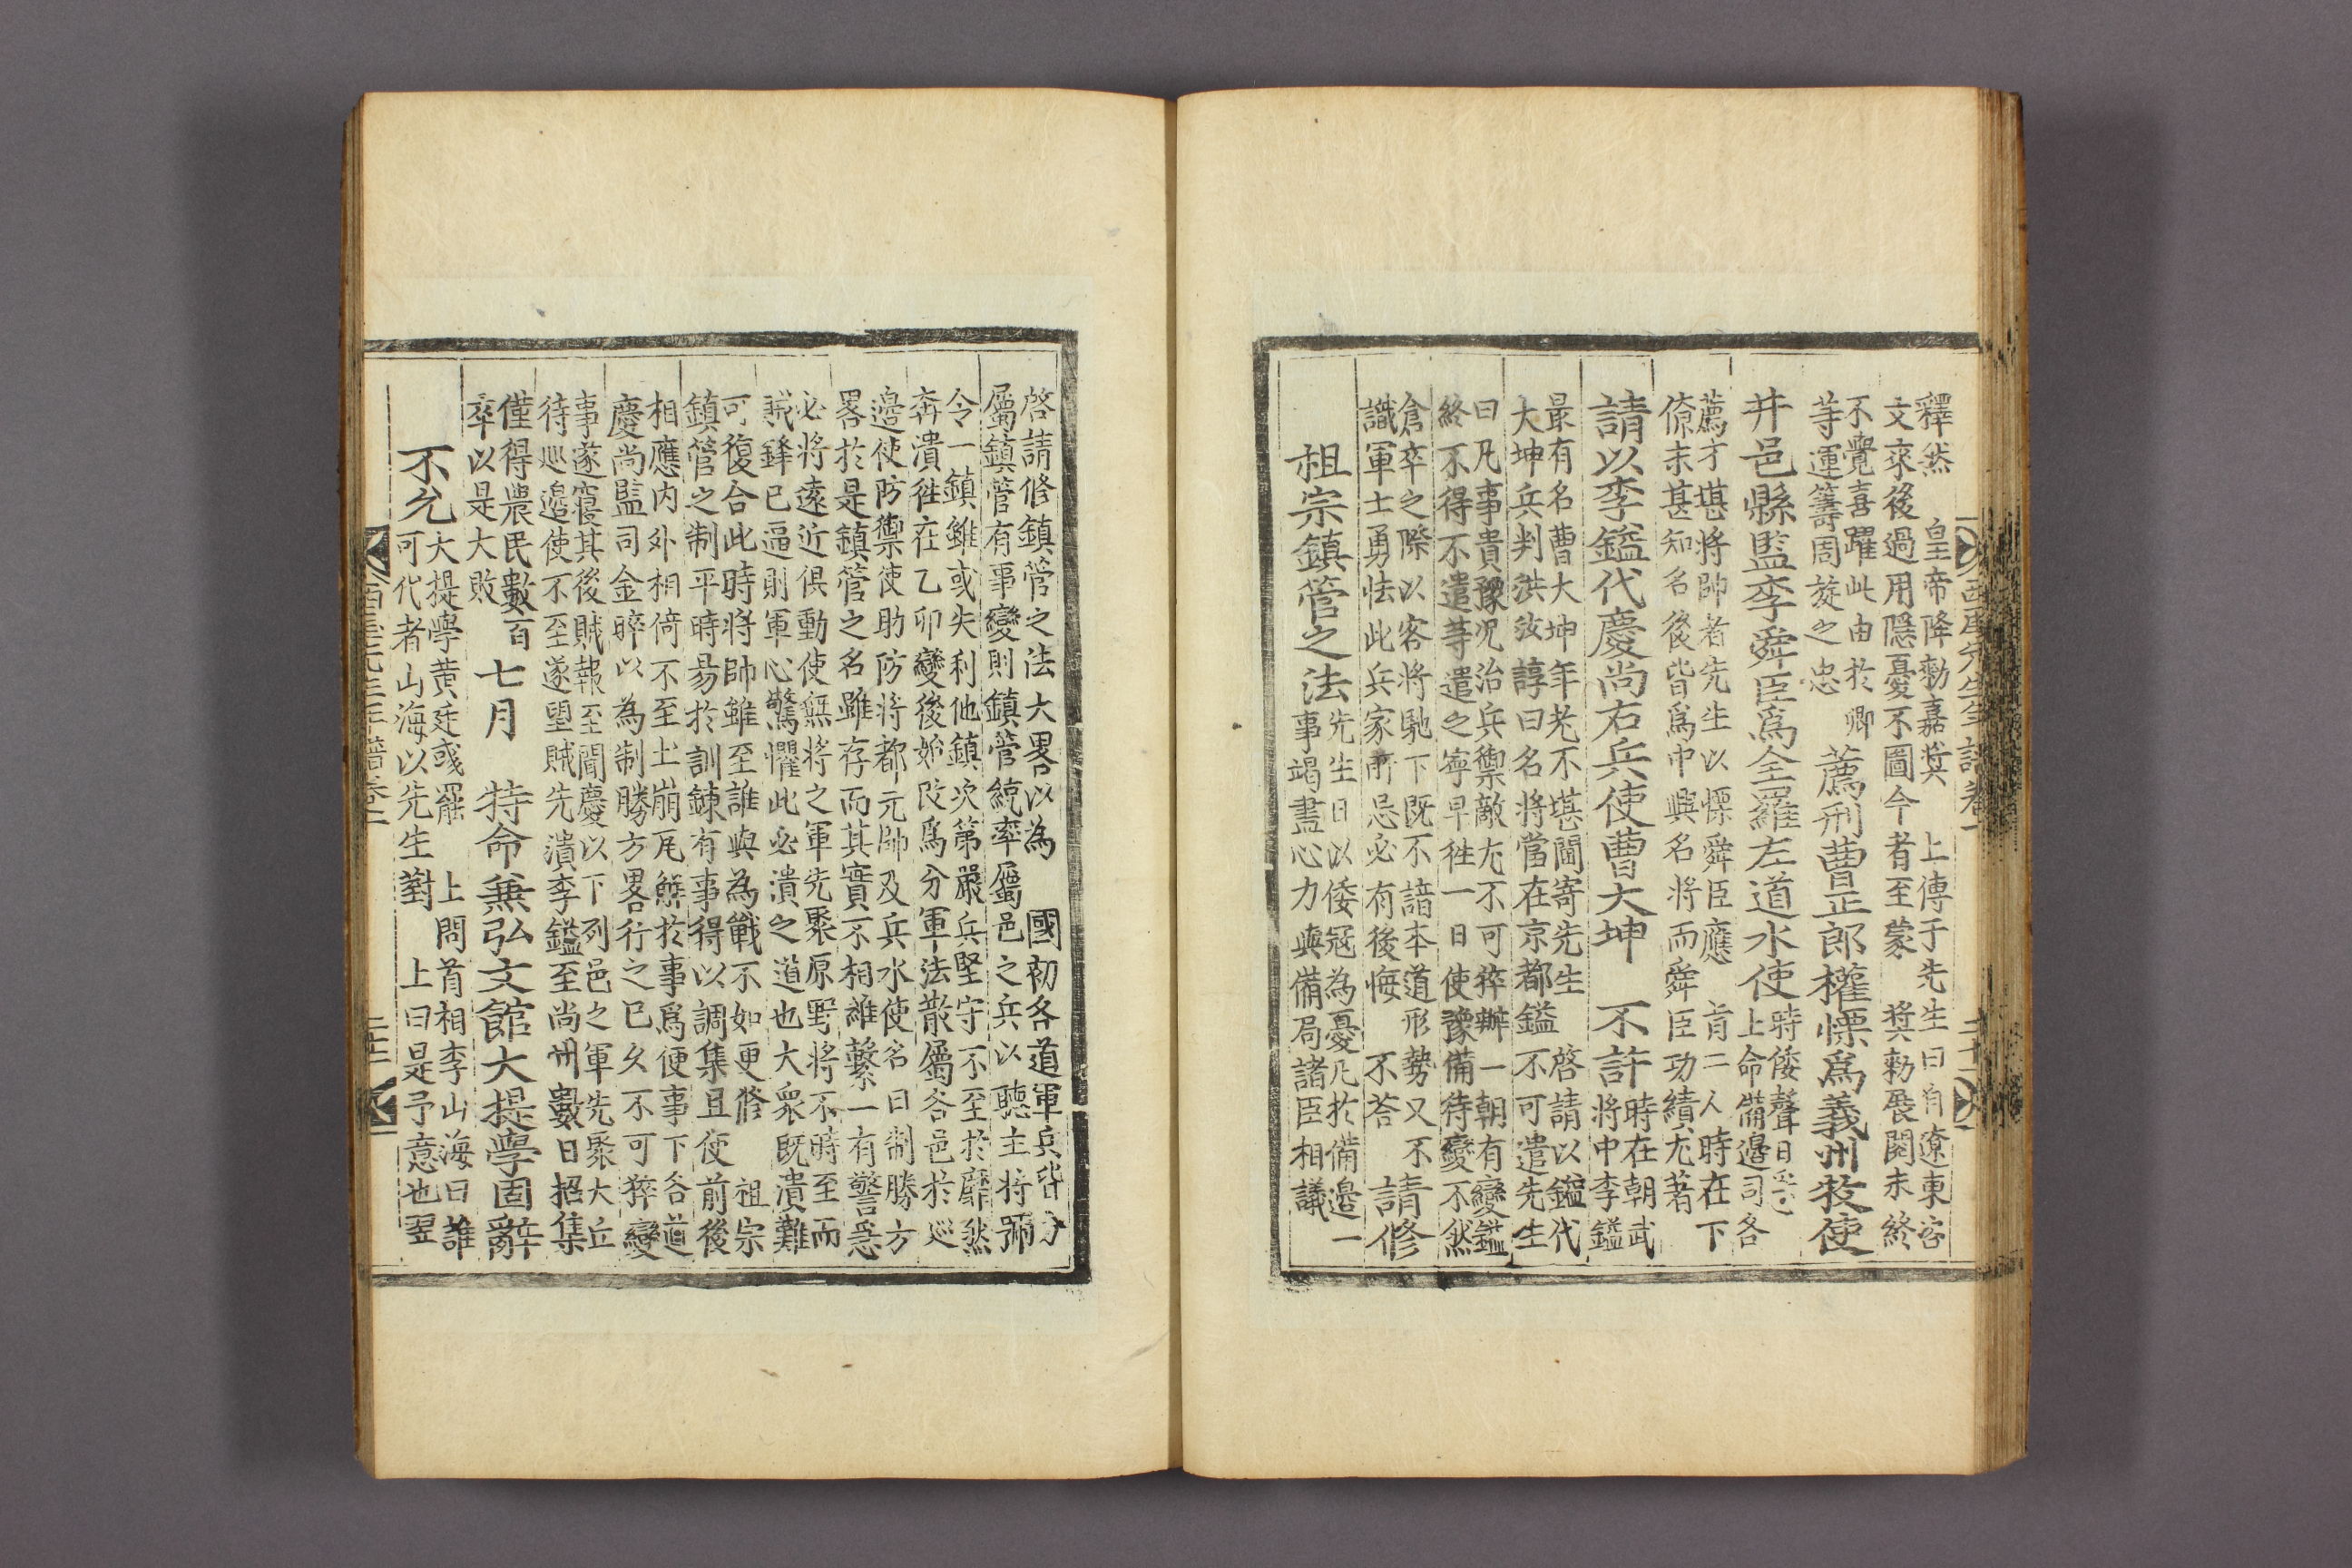 釋然 皇帝降勑嘉奬 上傳于先生曰自遼東咨
文來後過用隱憂不圖今者至蒙 奬勑展閱未終
不覺喜躍此由於卿
等運籌周旋之忠
薦刑曹正郎權慄爲義州牧使
井邑縣監李舜臣爲全羅左道水使
時倭聲日急
上命備邊司各
薦才堪將帥者先生以慄舜臣應 旨二人時在下
僚未甚知名後皆爲中興名將而舜臣功績尤著
請以李鎰代慶尚右兵使曹大坤 不許
時在朝武
將中李鎰
最有名曹大坤年老不堪閫寄先生 啓請以鎰代
大坤兵判洪汝諄曰名將當在京都鎰不可遣先生
曰凡事貴豫况治兵禦敵尤不可猝辦一朝有變鎰
終不得不遣等遣之寧早徃一日使豫備待變不然
倉卒之際以客將馳下既不諳本道形勢又不
識軍士勇怯此兵家所忌必有後悔 不答
請修
祖宗鎮管之法
先生日以倭冦為憂凡於備邊一
事竭盡心力與備局諸臣相議
啓請修鎮管之法大畧以為 國初各道軍兵皆分
屬鎮管有事變則鎮管統率屬邑之兵以聽主將號
令一鎮雖或失利他鎮次第嚴兵堅守不至於靡然
奔潰徃在乙卯變後始改爲分軍法散屬各邑於巡
邊使防禦使助防將都元帥及兵水使名曰制勝方
畧於是鎮管之名雖存而其實不相維繫一有警急
必將遠近俱動使無將之軍先聚原野將不時至而
賊鋒已逼則軍心驚懼此必潰之道也大衆既潰難
可復合此時將帥雖至誰與為戰不如更修 祖宗
鎮管之制平時昜於訓鍊有事得以調集且使前後
相應内外相倚不至土崩瓦觧於事爲便事下各道
慶尚監司金晬以為制勝方畧行之已久不可猝變
事遂寢其後賊報至聞慶以下列邑之軍先聚大丘
待巡邉使不至遂望賊先潰李鎰至尚州數日招集
僅得農民數百
卒以是大敗
七月 特命兼弘文館大提學固辭
不允
大提學黄廷彧罷 上問首相李山海曰誰
可代者山海以先生對 上曰是予意也翌